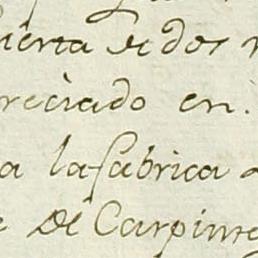 uierta de dos
preciado en
a la fabrica
de de Carpinte